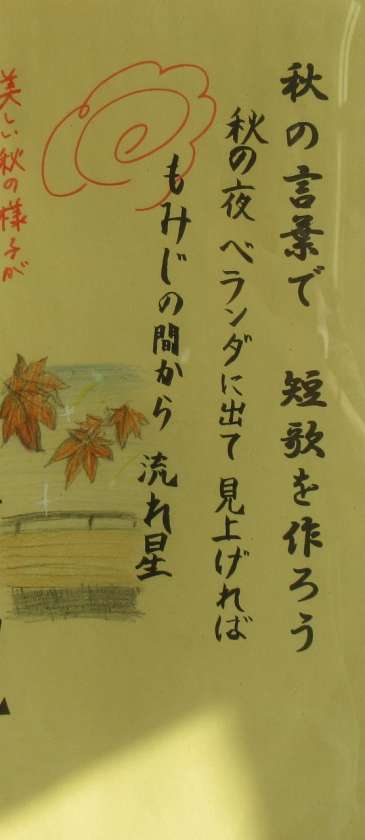 秋の言葉で 短歌を作ろう
秋の夜 ベランダに出て 見上げれば
もみじの間から 流れ星
美しい秋の様子が